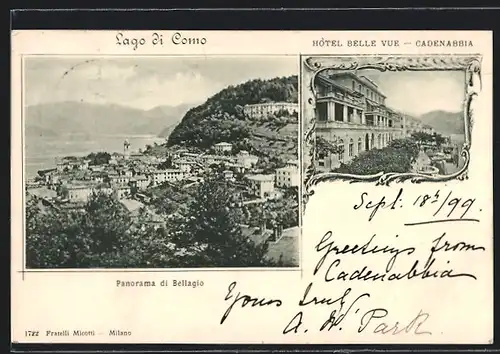 Lago di Como
HÔTEL BELLE VUE — CADENABBIA
Sept. 18th/99.
Greetings from
Cadenabbia
Panorama di Bellagio
Yours truly
A. W. Park
1722 Fratelli Micotti — Milano